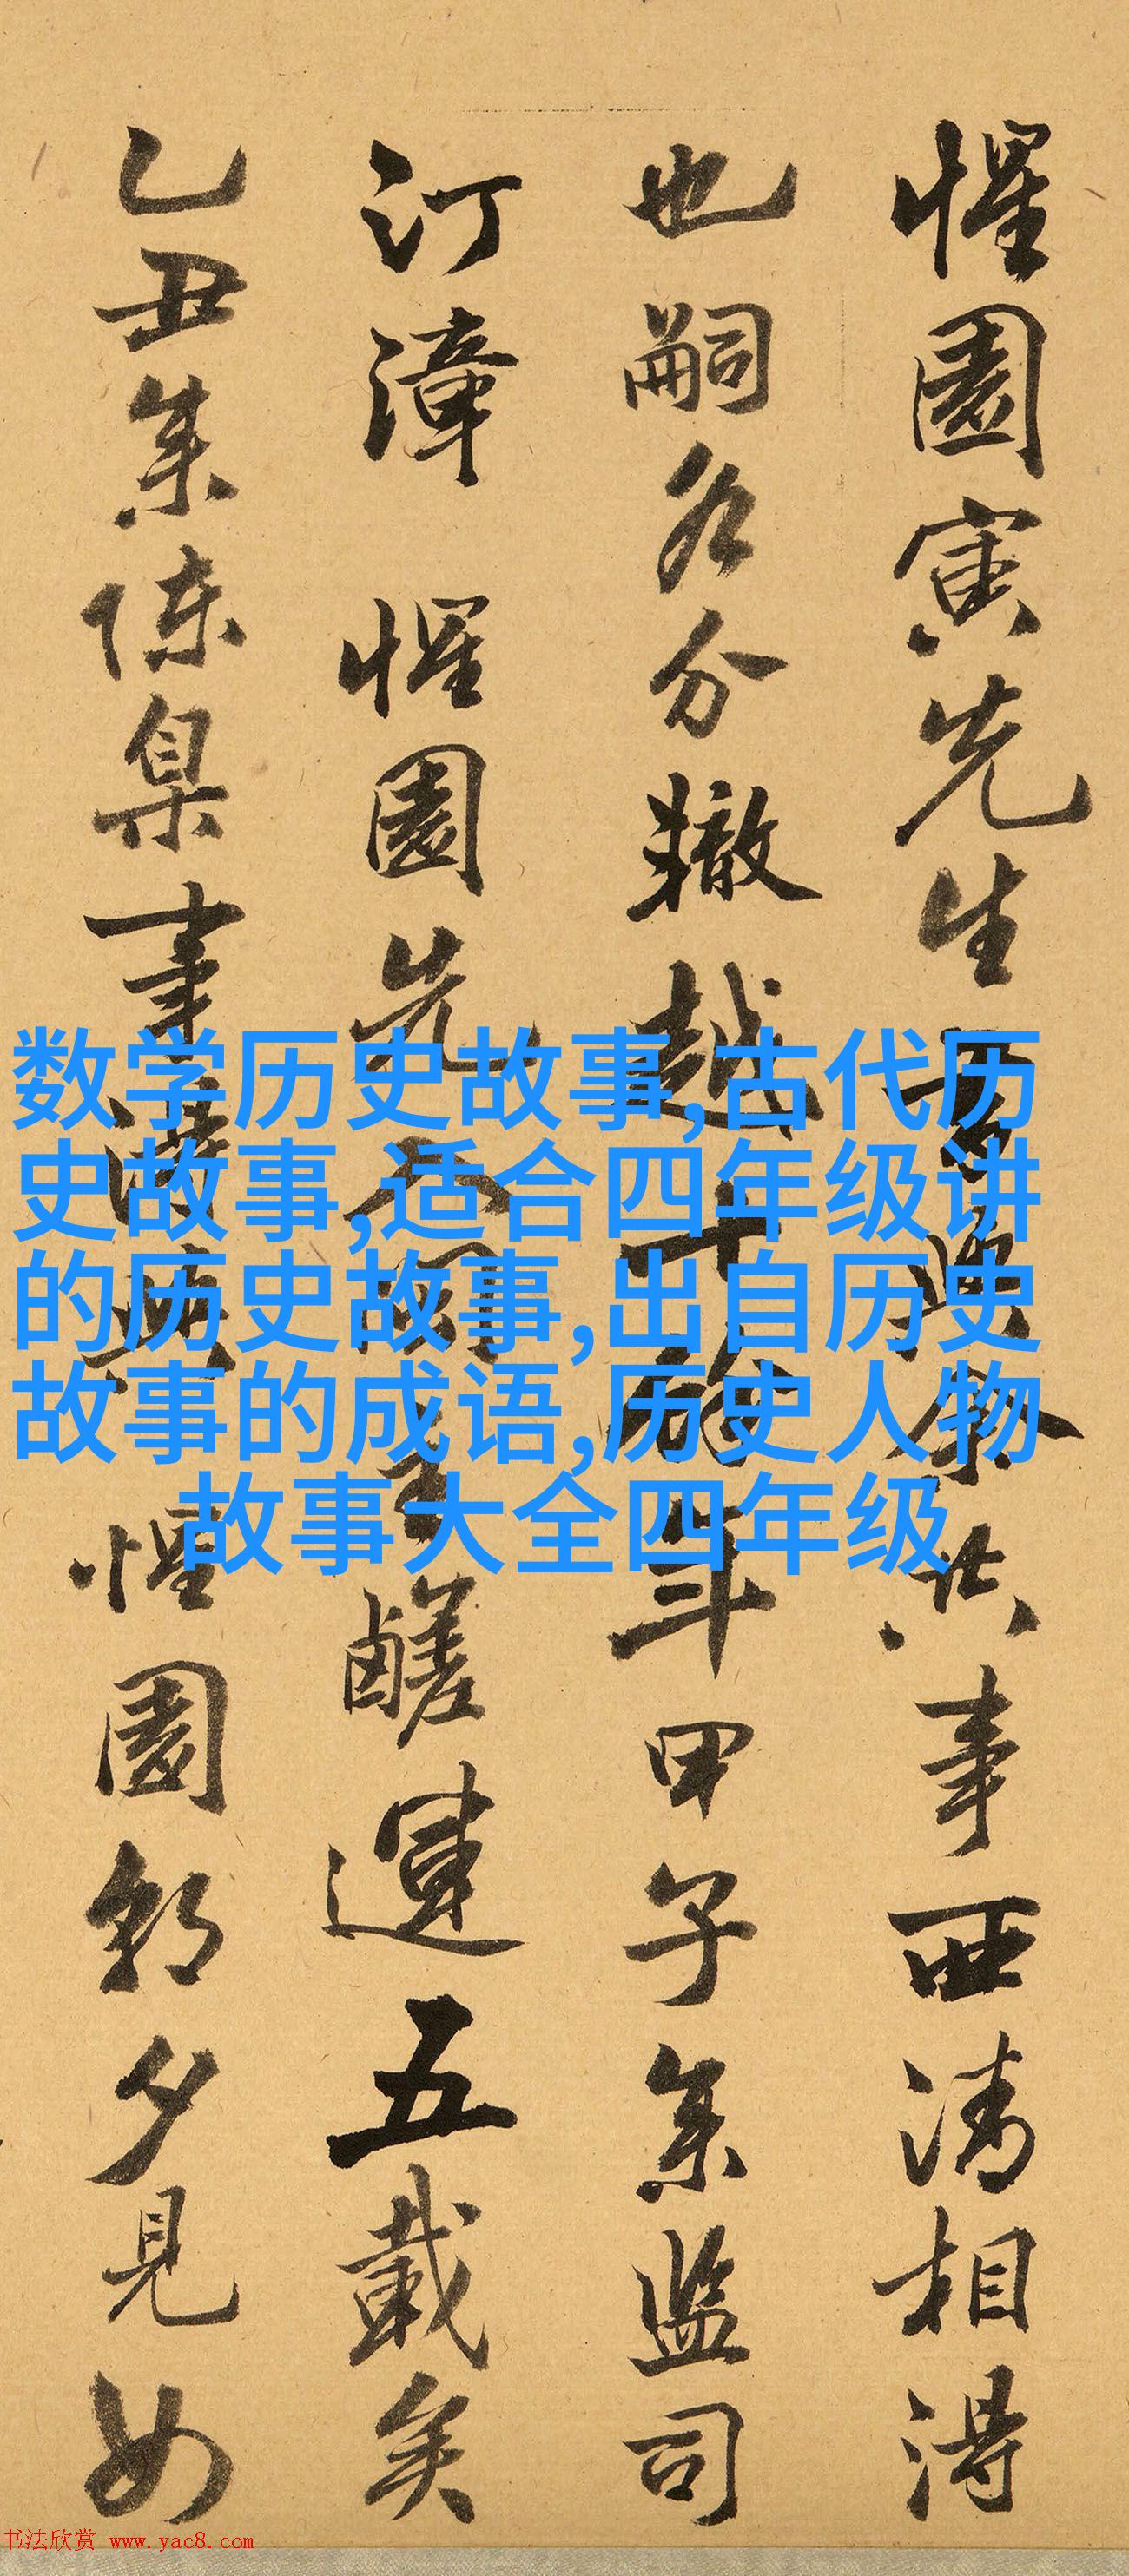 惺園寅先生
事西清相得
也嗣各分轍越
年甲子余監司
汀漳 惺園先
鹺運五載矣
乙丑余陳臬事
惺園朝夕見如
数学历史故事,古代历
史故事,适合四年级讲
的历史故事,出自历史
故事的成语,历史人物
故事大全四年级
书法欣赏 www.yac8.com